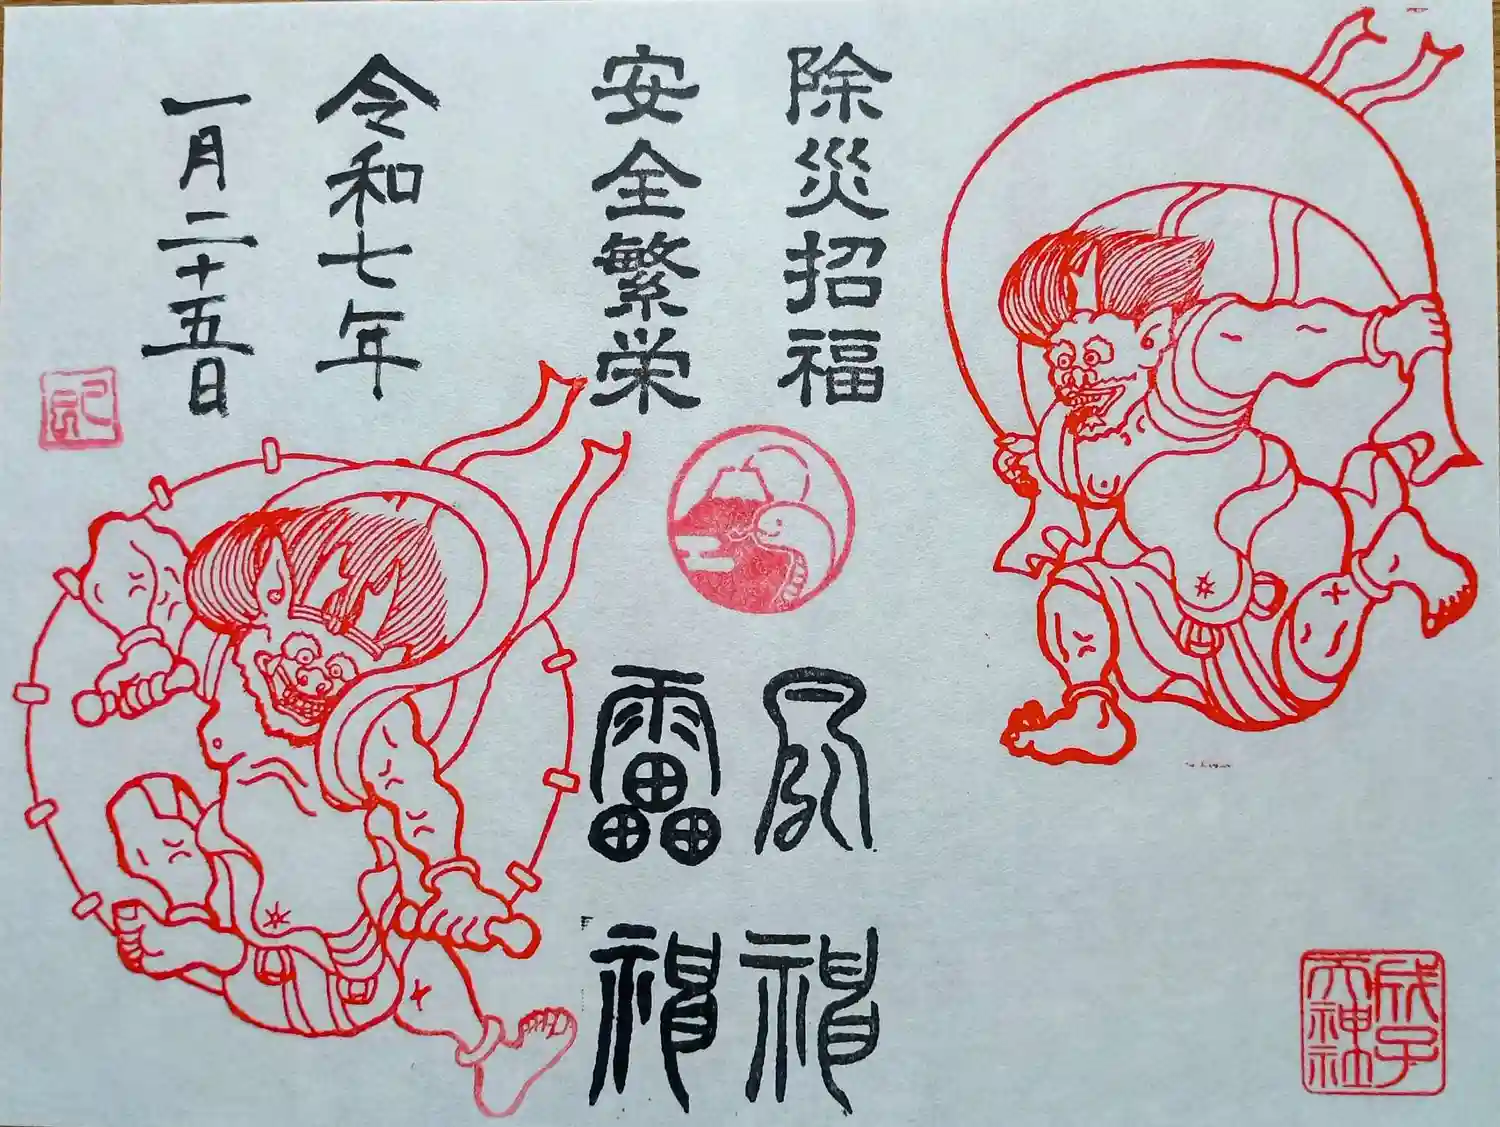 除災招福
安全繁栄
風神
雷神
令和七年
一月二十五日
成子
天神社